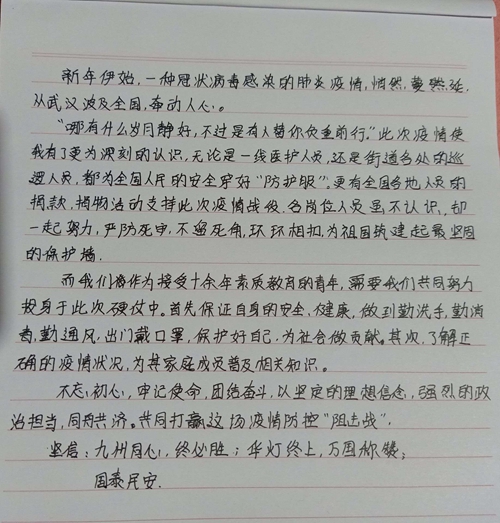 新年伊始,一种冠状病毒感染的肺炎疫情,悄然,蔓然延.
从武汉波及全国,牵动人心。
"哪有什么岁月静好,不过是有人替你负重前行."此次疫情使
我有了更为深刻的认识,无论是一线医护人员,还是街道各处的巡
逻人员,都为全国人民的安全穿好"防护服".更有全国各地人员的
捐款,捐物活动支持此次疫情战役.各岗位人员虽不认识,却
一起努力,严防死守,不留死角,环环相扣,为祖国筑建起最坚固
的保护墙.
而我们作为接受十余年素质教育的青年,需要我们共同努力
投身于此次硬仗中.首先保证自身的安全、健康,做到勤洗手,勤消
毒,勤通风,出门戴口罩,保护好自己,为社会做贡献.其次,了解正
确的疫情状况,为其家庭成员普及相关知识。
不忘初心,牢记使命,团结奋斗,以坚定的理想信念,强烈的政
治担当,同舟共济。共同打赢这场疫情防控"阻击战".
坚信:九州同心,终必胜;华灯终上,万国称
国泰民安.